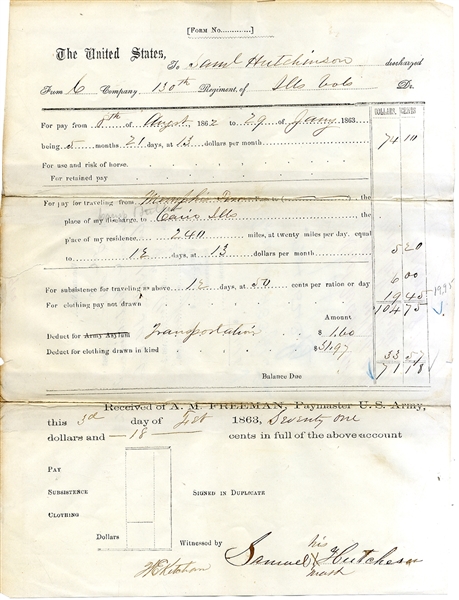 [FORM No............]
The United States, To Saml Hutchinson discharged
From C Company, 130th Regiment, of Ills Vols Dr.
DOLLARS. CENTS
For pay from 8th of August, 1862 to 29 of Jany 1863.
being 5 months 21 days, at 13 dollars per month 74 10
For use and risk of horse.
For retained pay
For pay for traveling from Memphis Tenn the
place of my discharge, to Cairo Ills the
place of my residence, 240 miles, at twenty miles per day, equal
to 12 days, at 13 dollars per month 5 20
For subsistence for traveling as above 12 days, at 50 cents per ration or day 6 00
For clothing pay not drawn 19 45 1945
104 75
Amount
Deduct for Army Asylum Transportation $ 1.60
Deduct for clothing drawn in kind $31.97 33 57
Balance Due 71 18
Received of A. M. FREEMAN, Paymaster U. S. Army,
this 3d day of Feb 1863, Seventy one
dollars and —18— cents in full of the above account
PAY
SUBSISTENCE SIGNED IN DUPLICATE
CLOTHING
Dollars Witnessed by
his
Samuel X Hutcheson
mark